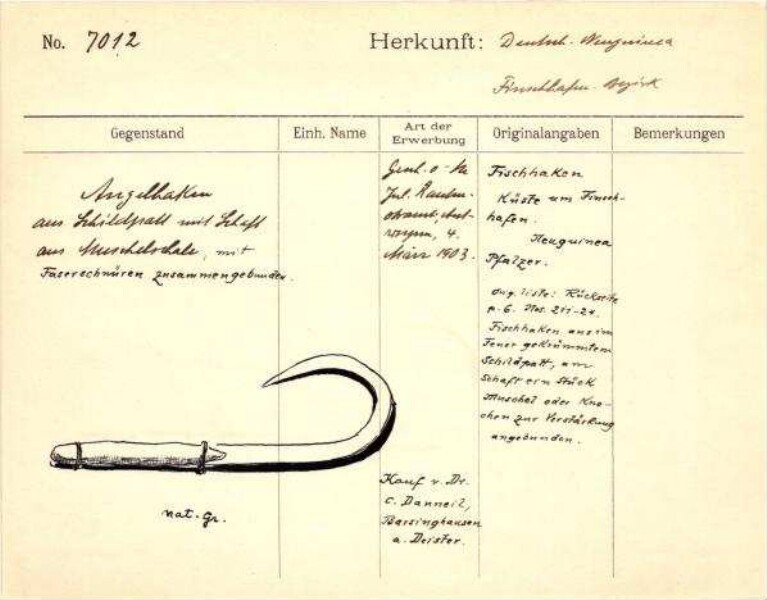 No. 7012
Herkunft: Deutsch-Neuguinea
Finschhafen-Bezirk
Gegenstand
Einh. Name
Art der
Erwerbung
Originalangaben
Bemerkungen
Angelhaken
aus Schildpatt mit Schaft
aus Muschelschale, mit
Faserschnüren zusammengebunden.
Jul.
4.
März 1903.
Kauf v. Dr.
C. Danneil,
Barsinghausen
a. Deister.
Fischhaken
Küste um Finsch-
hafen.
Neuguinea
Pfalzer.
Orig. liste: Rückseite
p. 6. Nos. 211-21.
Fischhaken aus im
Feuer gekrümmtem
Schildpatt, am
Schaft ein Stück
Muschel oder Kno-
chen zur Verstärkung
angebunden.
nat. Gr.